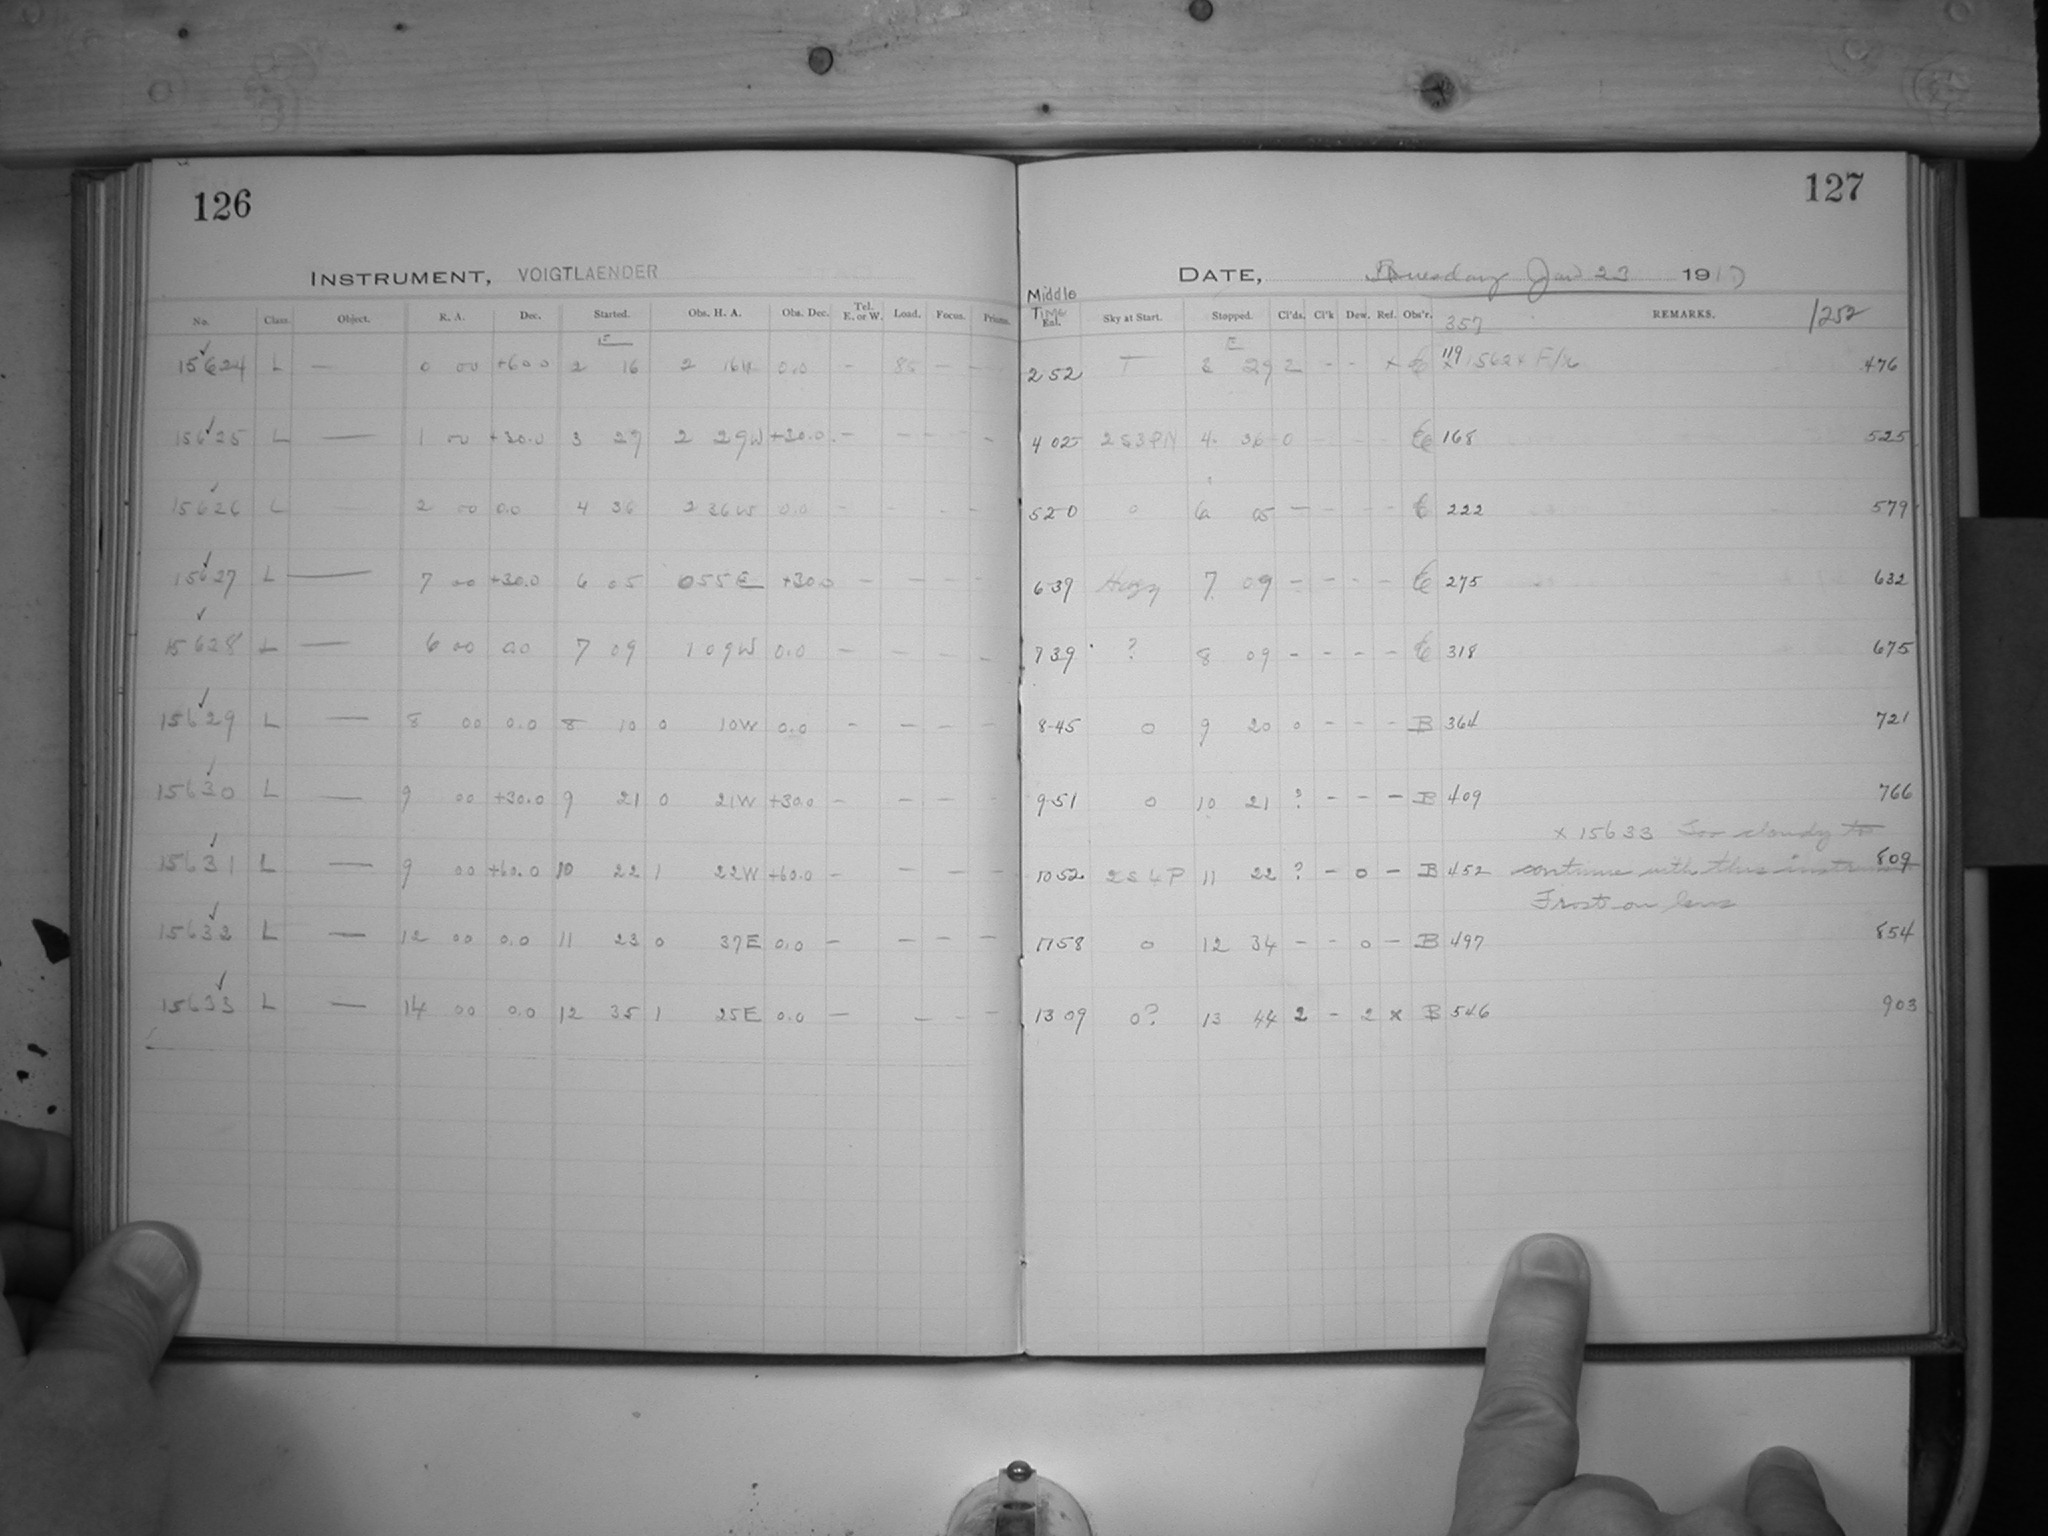 126
127
INSTRUMENT, VOIGTLAENDER
DATE, Tuesday Jan 23 1917
No. Class. Object. R. A. Dec. Started. Obs. H. A. Obs. Dec. Tel. E. or W. Load. Focus. Prisms. Middle Time Ent. Sky at Start. Stopped. Cl'ds. Cl'k Dew. Ref. Obs'r. 357 REMARKS. 1252
E E
15624 L — 0 00 +60.0 2 16 2 16W 0.0 — 85 — — 2 52 29 2 - - x 119 x 15624 F/r 476
15625 L — 1 00 +30.0 3 29 2 29W +30.0 — — — — 4 02 2S3PN 4 36 0 168 525
15626 L — 2 00 0.0 4 36 2 36W 0.0 - - - - 5 20 0 6 05 — - - - 222 579
15627 L — 7 00 +30.0 6 05 0 55E +30.0 — — — — 6 39 Hazy 7 09 - - - - 275 632
15628 L — 6 00 0.0 7 09 1 09W 0.0 — — — — 7 39 ? 8 09 - - - - 318 675
15629 L — 8 00 0.0 8 10 0 10W 0.0 - — — — 8-45 0 9 20 0 - - - B 364 721
15630 L — 9 00 +30.0 9 21 0 21W +30.0 — — — — 9-51 0 10 21 ? - - - B 409 766
x 15633 Too cloudy to
15631 L — 9 00 +60.0 10 22 1 22W +60.0 — — — — 10 52 2S4P 11 22 ? - 0 - B 452 continue with this instrument 809
Frost on lens
15632 L — 12 00 0.0 11 23 0 37E 0.0 — — — — 11 58 0 12 34 - - 0 - B 497 854
15633 L — 14 00 0.0 12 35 1 25E 0.0 — — — — 13 09 0? 13 44 2 - 2 x B 546 903